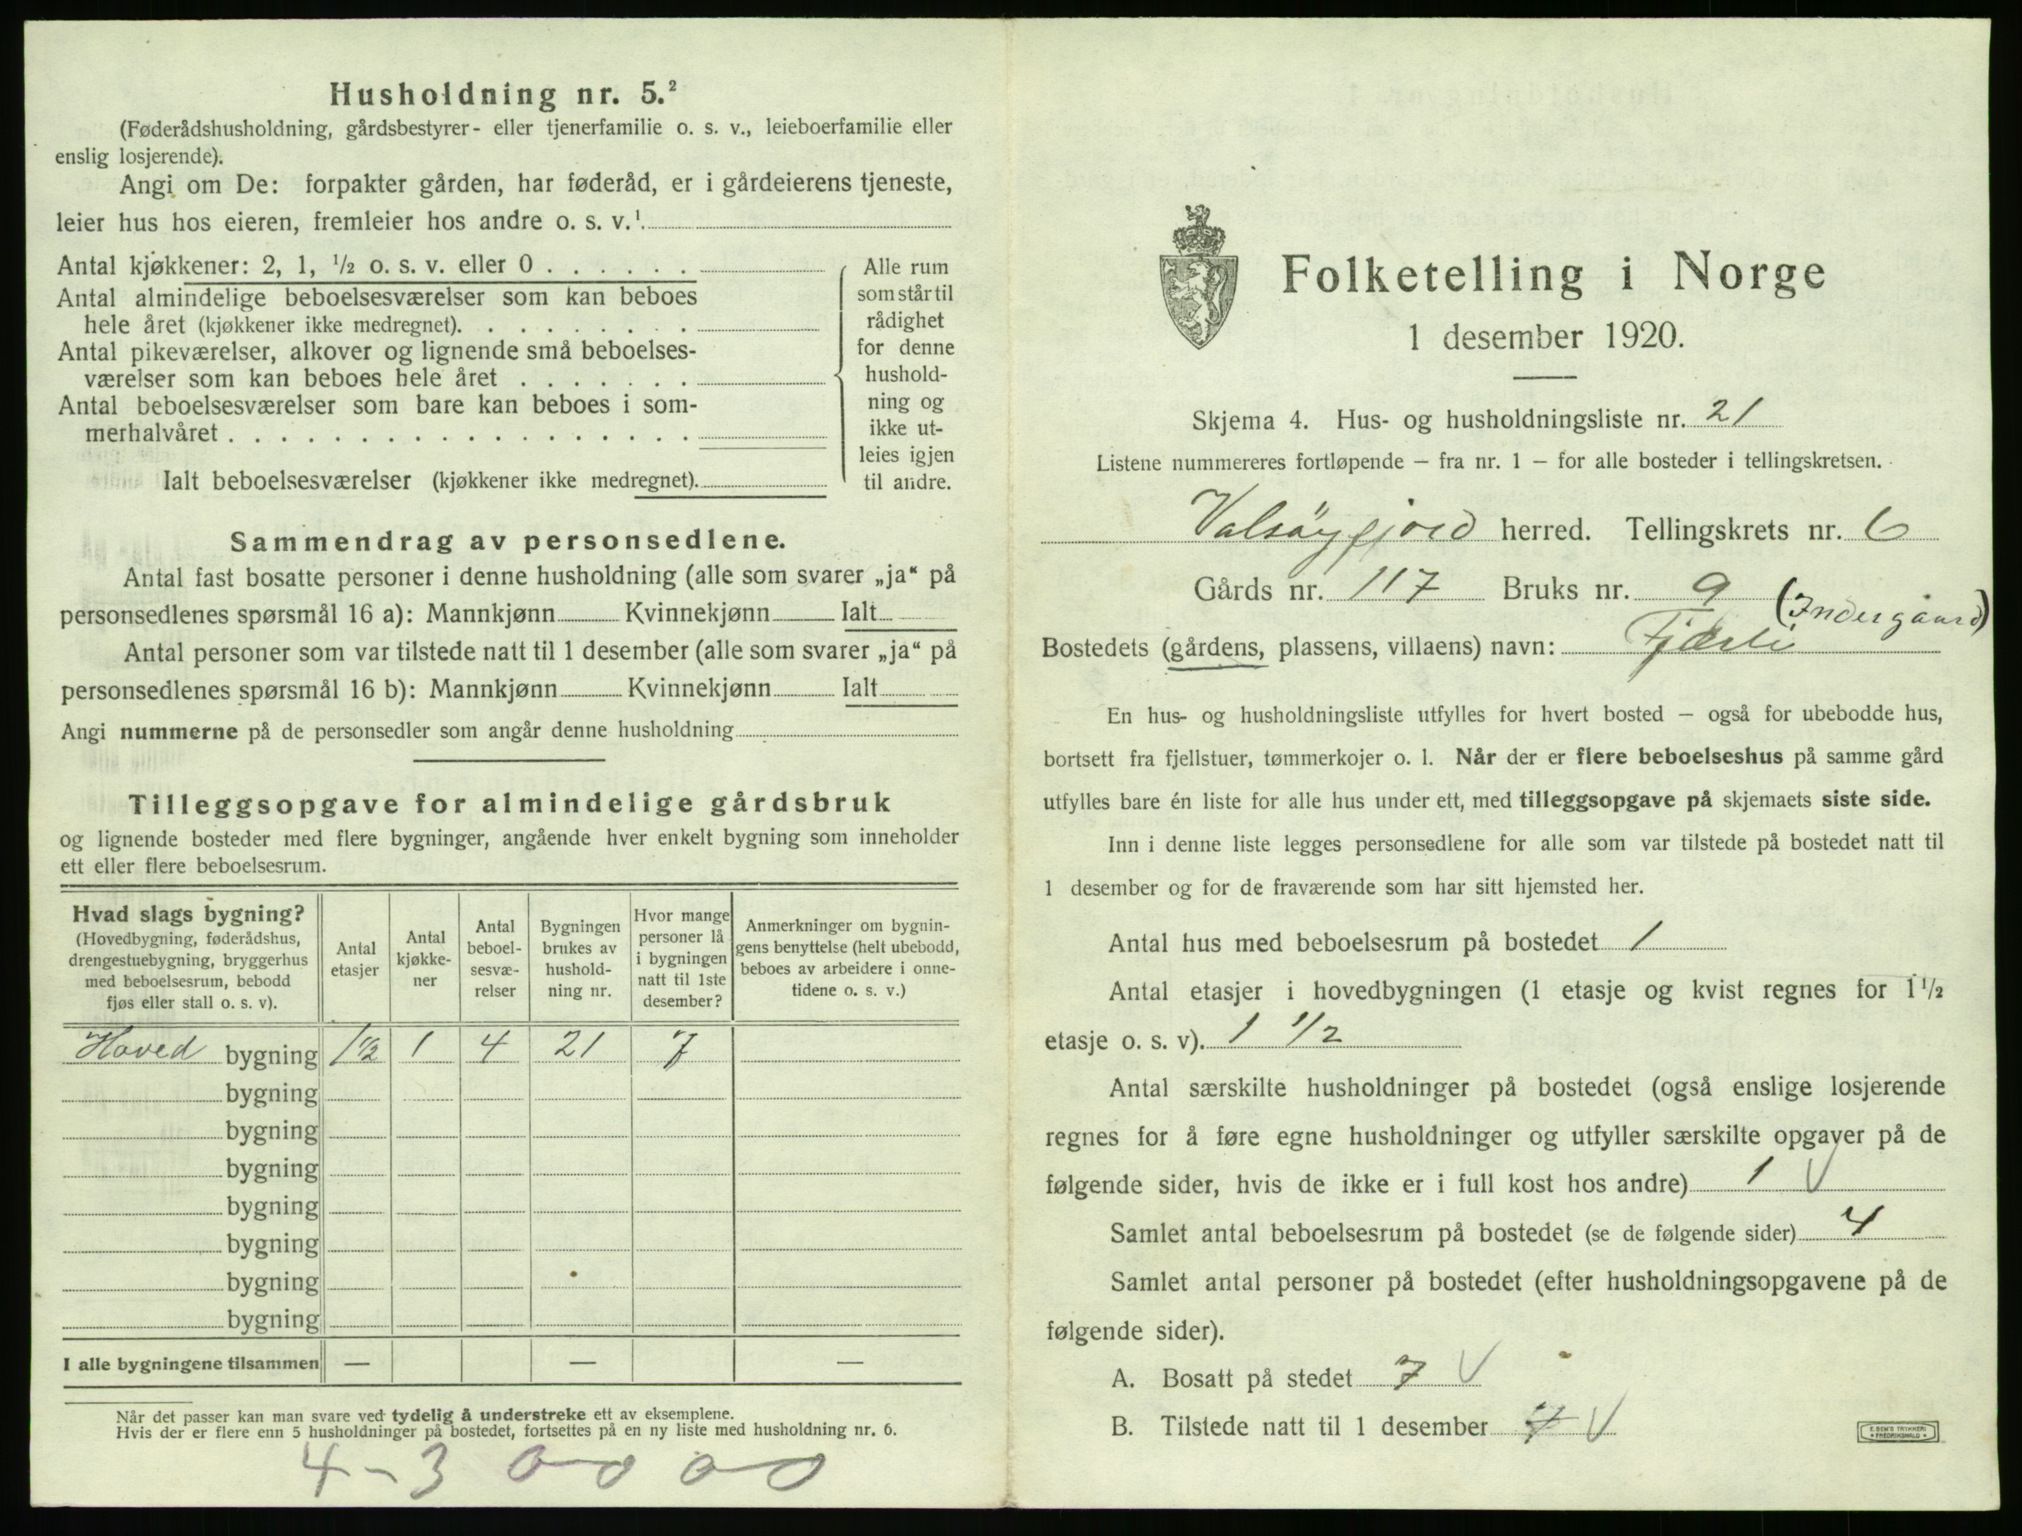 Husholdning nr. 5.²
(Føderådshusholdning, gårdsbestyrer- eller tjenerfamilie o. s. v., leieboerfamilie eller
enslig losjerende).
Angi om De: forpakter gården, har føderåd, er i gårdeierens tjeneste,
leier hus hos eieren, fremleier hos andre o. s. v.¹
Antal kjøkkener: 2, 1, ½ o. s. v. eller 0 . . . . . .
Antal almindelige beboelsesværelser som kan beboes
hele året (kjøkkener ikke medregnet). . . . . . . . .
Antal pikeværelser, alkover og lignende små beboelses-
værelser som kan beboes hele året . . . . . . .
Antal beboelsesværelser som bare kan beboes i som-
merhalvåret . . . . . . . . . . . . . . . . . .
Ialt beboelsesværelser (kjøkkener ikke medregnet).
Alle rum
som står til
rådighet
for denne
hushold-
ning og
ikke ut-
leies igjen
til andre.
Sammendrag av personsedlene.
Antal fast bosatte personer i denne husholdning (alle som svarer „ja“ på
personsedlenes spørsmål 16 a): Mannkjønn Kvinnekjønn Ialt
Antal personer som var tilstede natt til 1 desember (alle som svarer „ja“ på
personsedlenes spørsmål 16 b): Mannkjønn Kvinnekjønn Ialt
Angi nummerne på de personsedler som angår denne husholdning
Tilleggsopgave for almindelige gårdsbruk
og lignende bosteder med flere bygninger, angående hver enkelt bygning som inneholder
ett eller flere beboelsesrum.
Hvad slags bygning?
(Hovedbygning, føderådshus,
drengestuebygning, bryggerhus
med beboelsesrum, bebodd
fjøs eller stall o. s. v).
Antal
etasjer
Antal
kjøkke-
ner
Antal
beboel-
sesvæ-
relser
Bygningen
brukes av
hushold-
ning nr.
Hvor mange
personer lå
i bygningen
natt til 1ste
desember?
Anmerkninger om bygnin-
gens benyttelse (helt ubebodd,
beboes av arbeidere i onne-
tidene o. s. v.)
Hoved bygning 1½ 1 4 21 7
bygning
bygning
bygning
bygning
bygning
bygning
bygning
I alle bygningene tilsammen — — —
Når det passer kan man svare ved tydelig å understreke ett av eksemplene.
Hvis der er flere enn 5 husholdninger på bostedet, fortsettes på en ny liste med husholdning nr. 6.
4-3 0-0 0-0
Folketelling i Norge
1 desember 1920.
Skjema 4. Hus- og husholdningsliste nr. 21
Listene nummereres fortløpende – fra nr. 1 – for alle bosteder i tellingskretsen.
Valsøyfjord herred. Tellingskrets nr. 6
Gårds nr. 117 Bruks nr. 9
(Indergaard)
Bostedets (gårdens, plassens, villaens) navn: Fjærli
En hus- og husholdningsliste utfylles for hvert bosted – også for ubebodde hus,
bortsett fra fjellstuer, tømmerkojer o. l. Når der er flere beboelseshus på samme gård
utfylles bare én liste for alle hus under ett, med tilleggsopgave på skjemaets siste side.
Inn i denne liste legges personsedlene for alle som var tilstede på bostedet natt til
1 desember og for de fraværende som har sitt hjemsted her.
Antal hus med beboelsesrum på bostedet 1
Antal etasjer i hovedbygningen (1 etasje og kvist regnes for 1½
etasje o. s. v). 1 1/2
Antal særskilte husholdninger på bostedet (også enslige losjerende
regnes for å føre egne husholdninger og utfyller særskilte opgaver på de
følgende sider, hvis de ikke er i full kost hos andre) 1 V
Samlet antal beboelsesrum på bostedet (se de følgende sider) 4
Samlet antal personer på bostedet (efter husholdningsopgavene på de
følgende sider).
A. Bosatt på stedet 7 V
B. Tilstede natt til 1 desember 7 V